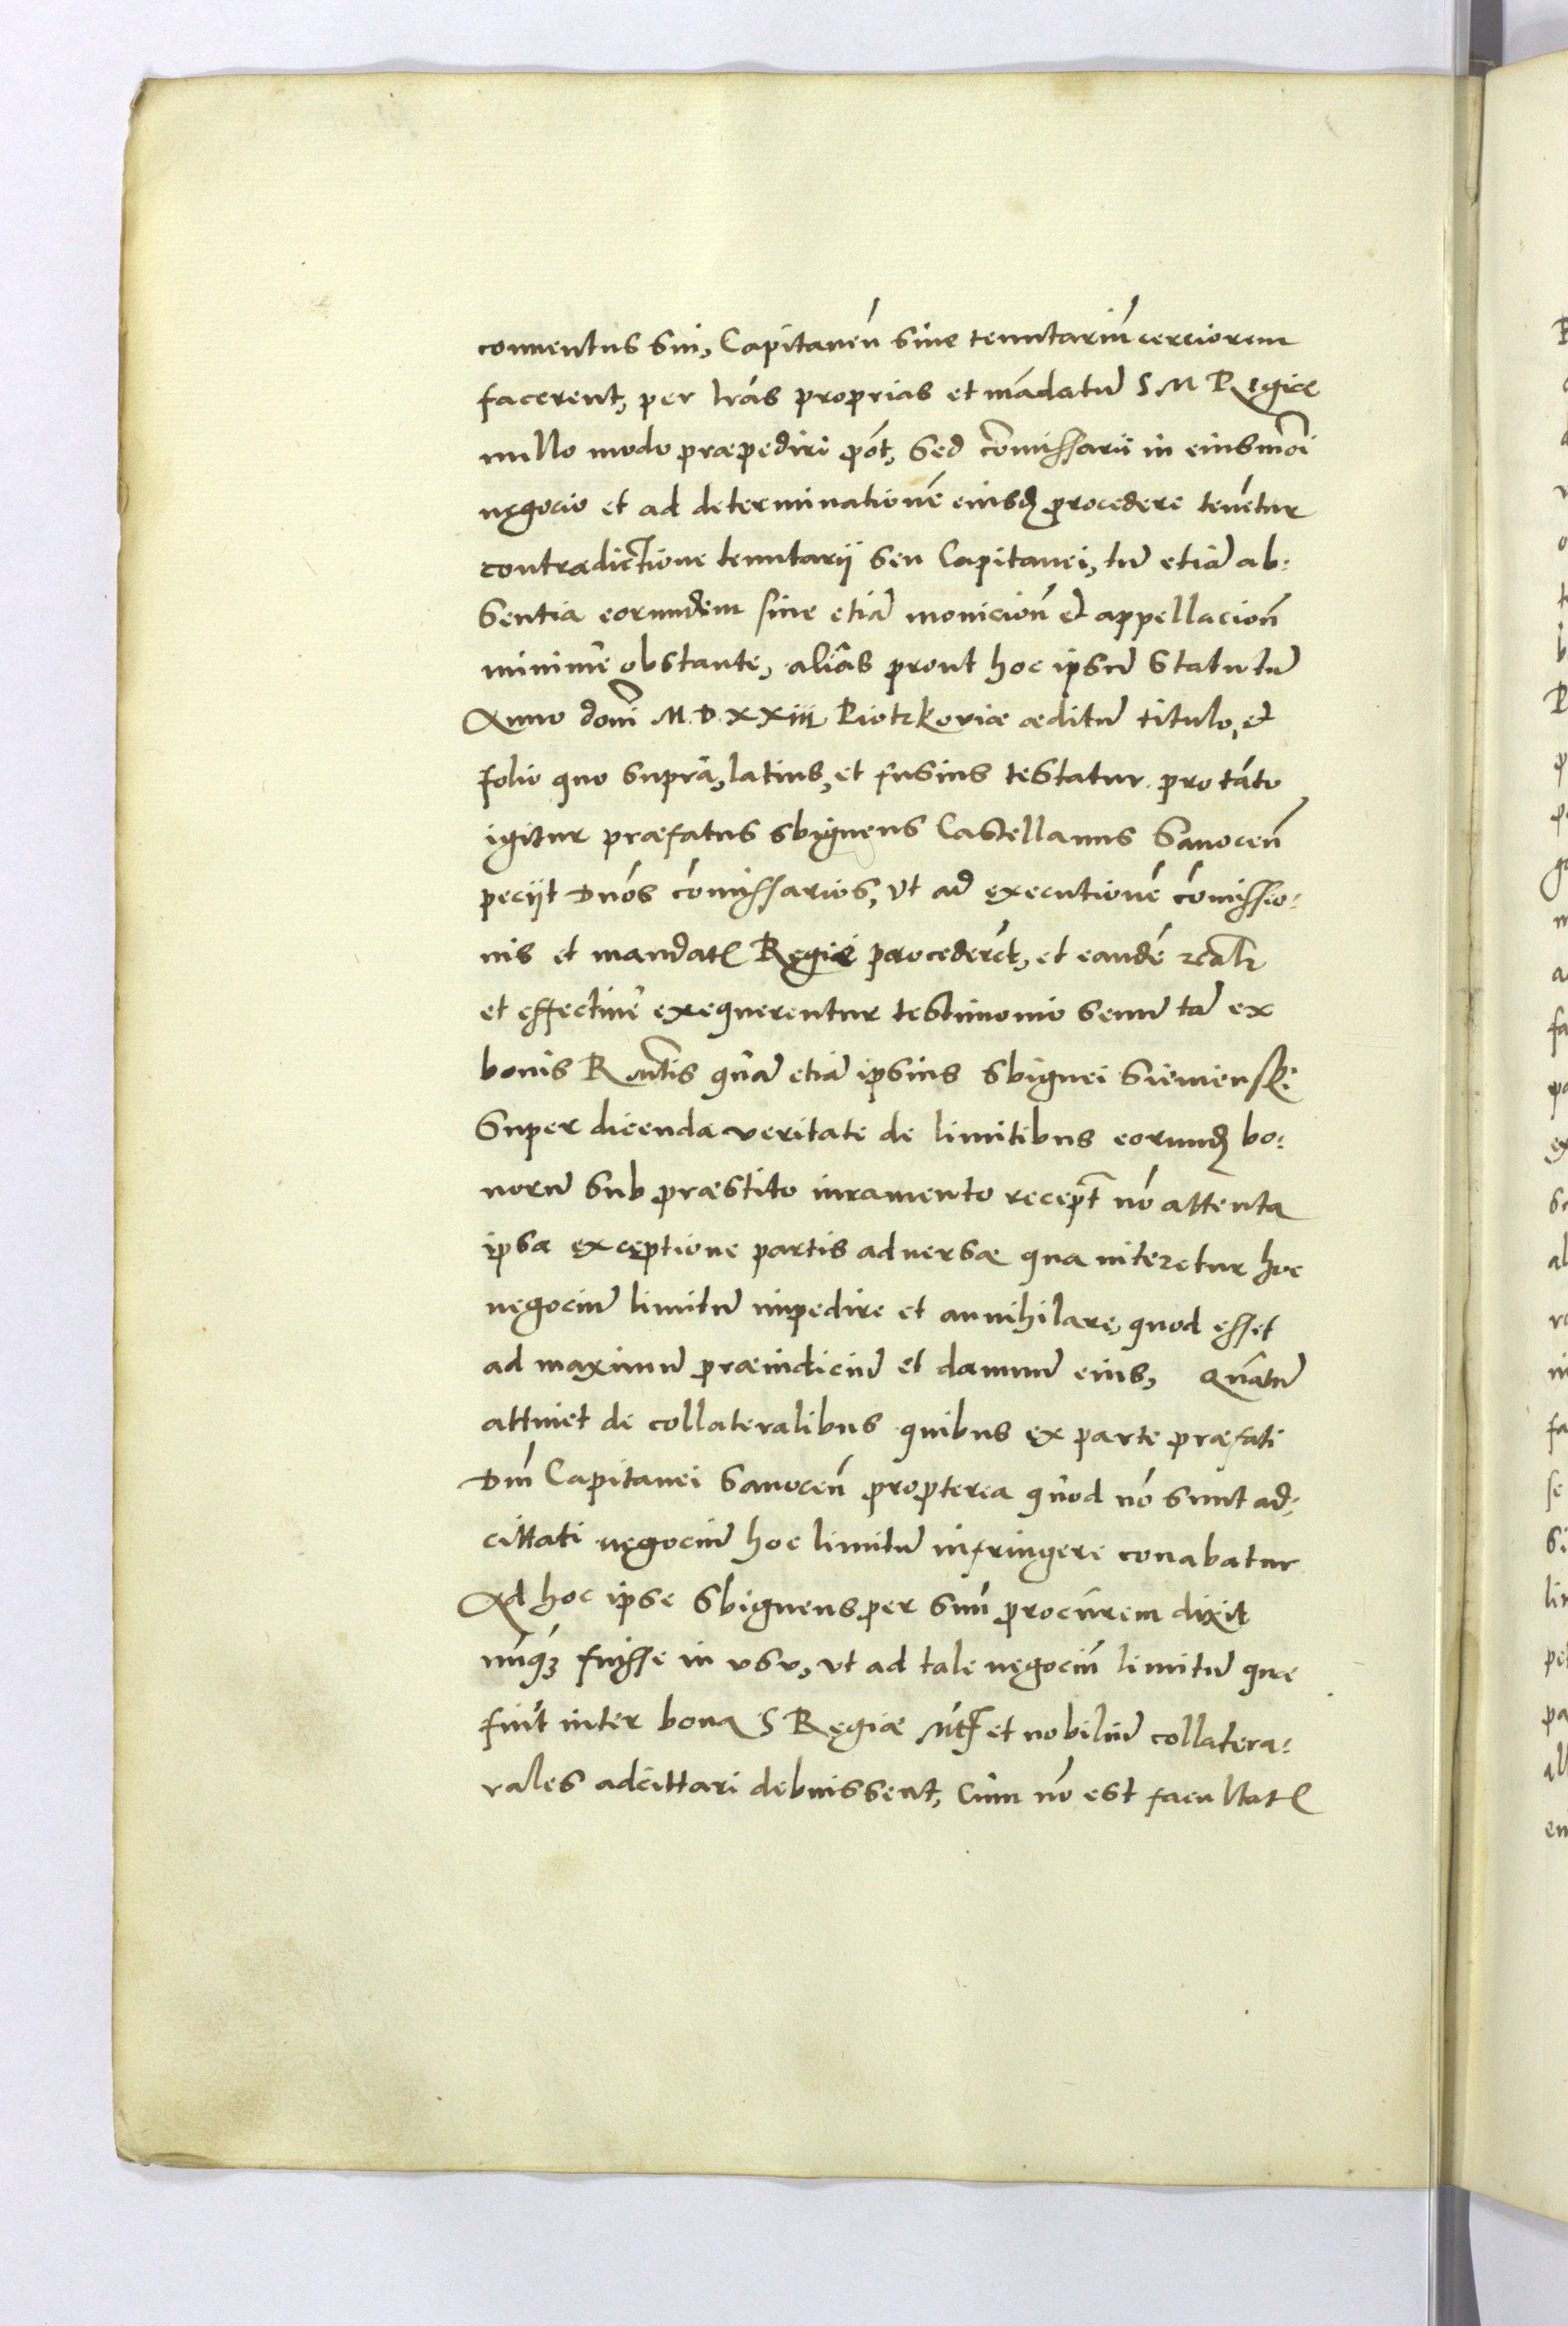 conuentus sui, Capitaneū siue tenutariū cerciorem
facerent, per lrās proprias et mādatū S M Regiae
nullo modo praepediri pōt, Sed cōmissarii in eiusmōi
negocio et ad determinationē eiusdꝫ procedere tenētur
contradictione tenutarij seu Capitanei, tū etiā ab:
sentia eorundem siue etiā monicioñ et appellacioñ
minime obstante, alias prout hoc ipsū statutū
Anno domī M.D.XXiii Piotrkoviae aeditū titulo, et
folio quo supra, latius, et fusius testatur. pro tāto
igitur praefatus Sbigneus Castellanus Sanoceñ
peciit Dnōs cōmissarios, vt ad executionē cōmissio:
nis et mandatꝭ Regiae procederēt, et eandē realr
et effectiue exequerentur testimonio senū tā ex
bonis Rēntis quā etiā ipsius Sbignei Siemienski
super dicenda veritate de limitibus eorundꝫ bo:
norū sub praestito iuramento recept̄ nō attenta
ipsa exceptione partis aduersae qua niteretur hoc
negociū limitū impedire et annihilare, quod esset
ad maximū praeiudiciū et damnū eius, Quātū
attinet de collateralibus quibus ex parte praefati
Dnī Capitanei Sanoceñ propterea quod nō sunt ad:
cittati negociū hoc limitū infringere conabatur
Ad hoc ipse Sbigneus per suū procūrem dixit
nūqꝫ fuisse in vsu, vt ad tale negociū limitū quae
fiūt inter bona S Regiae Mtꝭ et nobiliū collatera:
rales adcittari debuissent, Cum nō est facultatꝭ